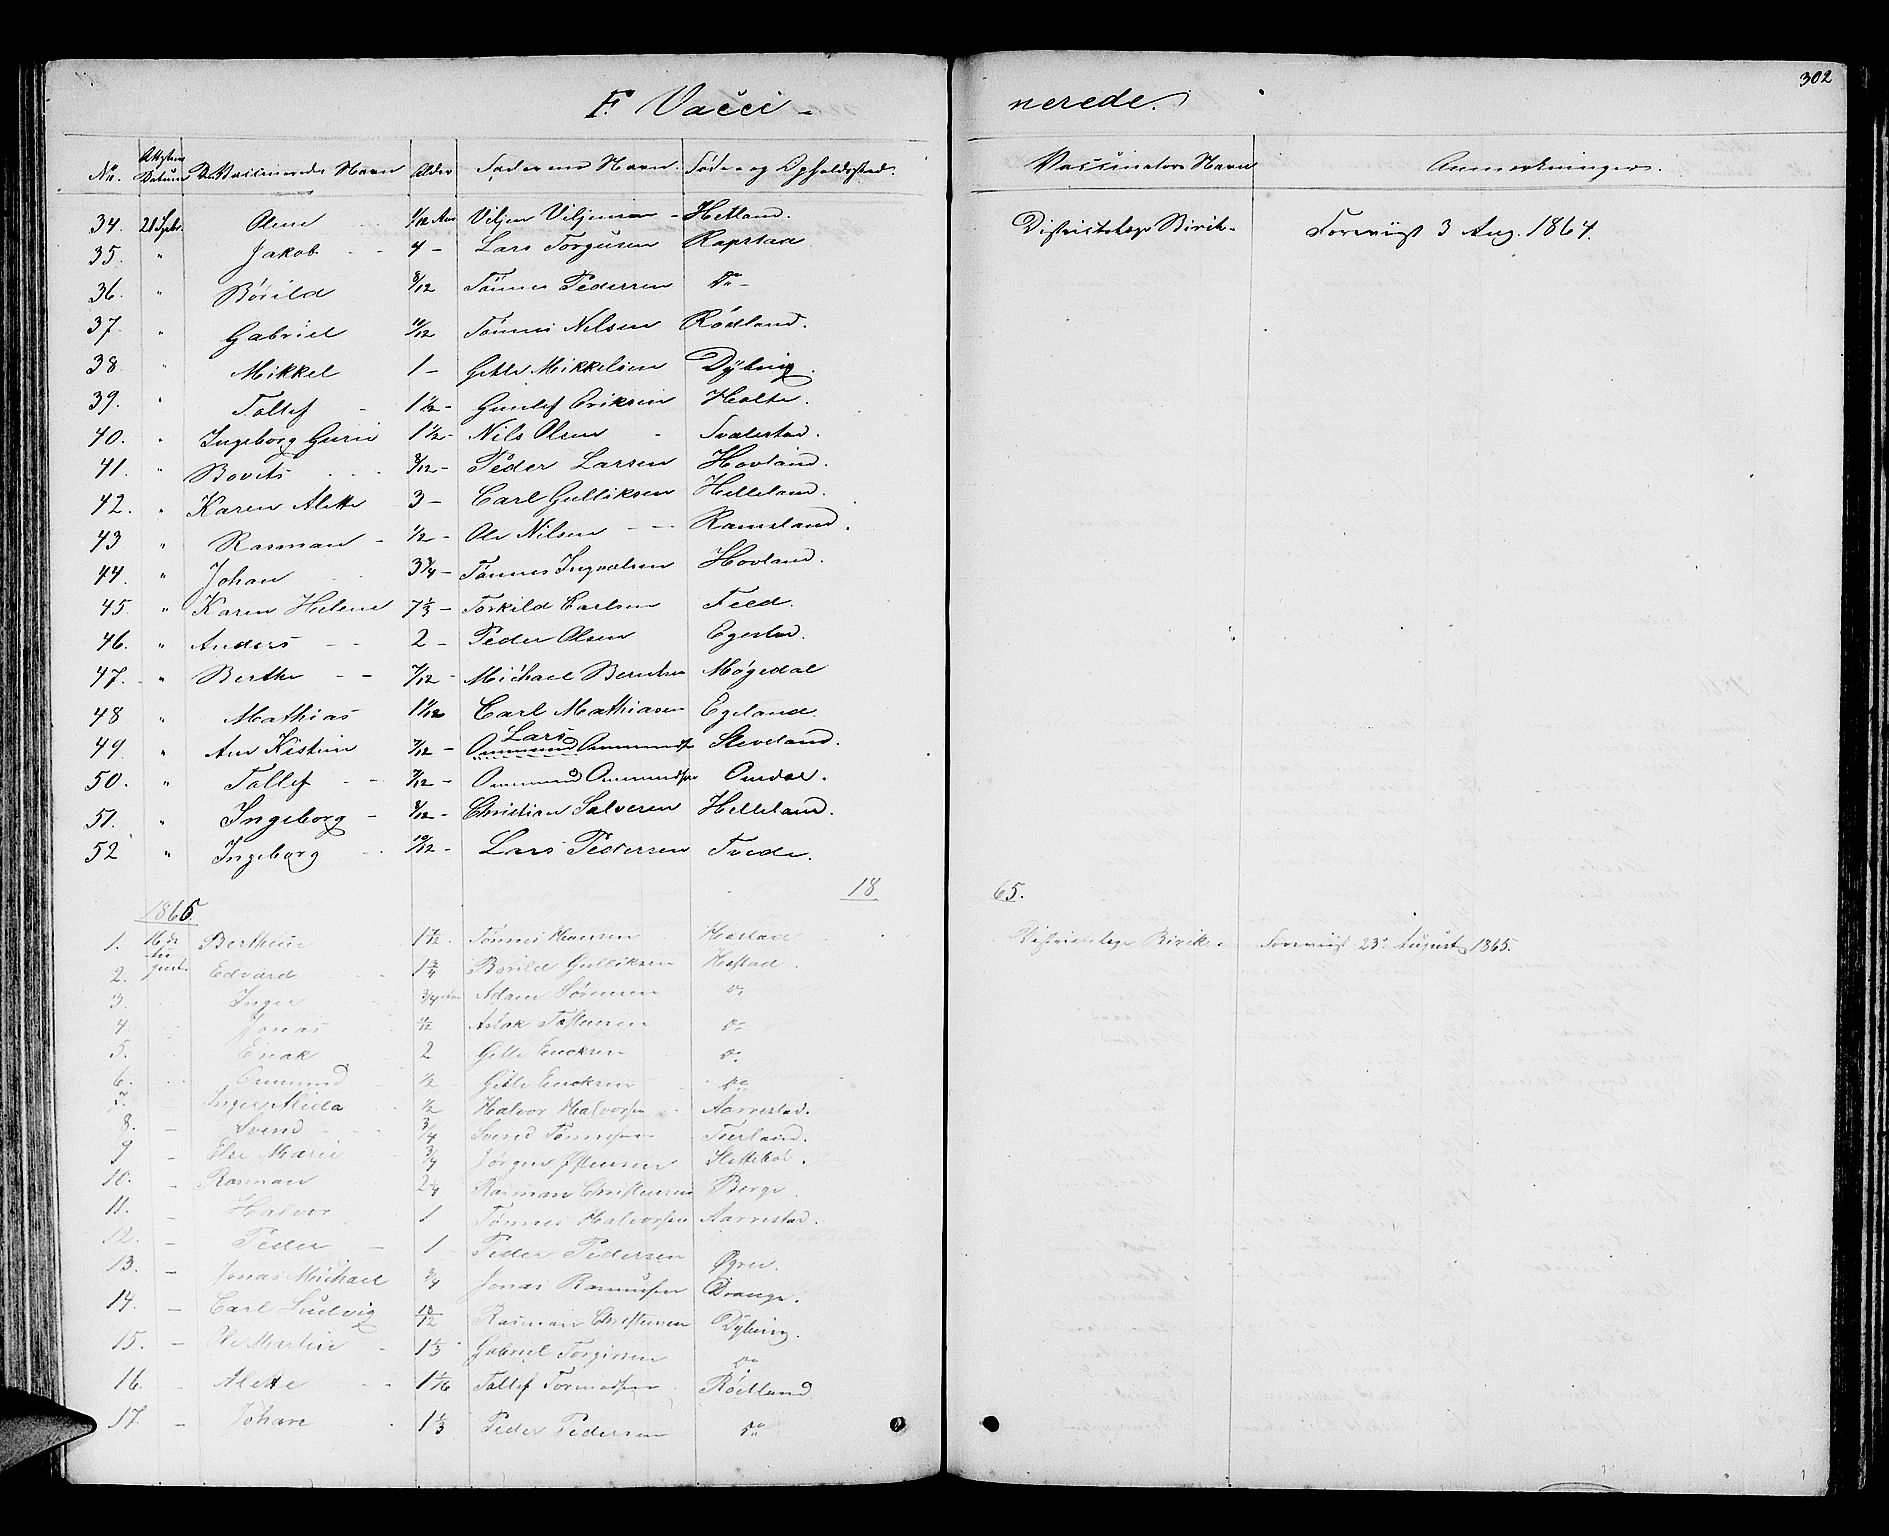 302
F. Vacci-nerede.
No. Attestens Datum De Vaccineredes Navn Alder Faderens Navn. Føde- og Opholdssted. Vaccinators Navn Anmærkninger.
34. 21 Septr. Olene 1/12 Aar Viljem Viljemsen - Hetland. Districtslæge Birch - Foreviist 3 Aug. 1864.
35. " Jakob 4 - Lars Torgusen Rapstad
36. " Börild 8/12 Tönnes Pedersen Do -
37. " Gabriel 10/12 Tönnes Nilsen Rödland.
38 " Mikkel 1 - Gitle Mikkelsen Dybing.
39. " Tollef - Gunlef Eriksen Holte.
40. " Ingeborg Gurie 1 1/2 - Nils Olsen - Tvalestad.
41. " Bovits 8/12 - Peder Larsen Hovland.
42. " Karen Alette 3 - Carl Gulliksen Helleland.
43 " Rasman - 1/2 - Ole Nilsen - - Ramsland.
44. " Johan 3 3/4 - Tönnes Ingvalsen Hovland.
45. " Karen Helene 7 1/3 - Torkild Carlsen Feed.
46. " Anders - - 2 - Peder Olsen Egestad.
47. - " Berthe - - 7/12 - Michael Berntsen Mögedal
48 " Mathias Carl Mathiasen Egeland.
49. " Ane Kistine 7/12 - Lars Ommund Ommundsen Steveland.
50. " Tollef - - 7/12 - Ommund Ommundsen Omdal.
51. " Ingeborg - 8/12 - Christian Salvesen Helleland.
52 " Ingeborg 10/12 - Lars Pedersen Tvede.
18 65.
1865.
1. 16de Au Berthine 1 7/12. Tönnes Hansen Districtslæge Birch - Foreviist 23de August 1865.
2. gust. Edvard 1 3/4 Börild Gulliksen Hestad.
3. Inger 3/4 Aar Adam Sörensen Do
4. Jonas Aslak Do
5. Enok 2 Gitle Enoksen Do
6. Ommund 1/2 Gitle Enoksen Do
7. - Inger Alida - 1/2 Halvor Halvorsen Aarrestad.
8. - Svend 3/4 Svend Tönnesen
9 - Else Marie 3/4 Jörgen Slettebö.
10. - Rasman 2 1/4 Rasman Christensen Berge.
11. - Halvor 1 Tönnes Halvorsen Aarrestad.
12. - Peder - 1 - Peder Pedersen
13. - Jonas Michael 3/4 Jonas Rasmussen Drange.
14. - Carl Ludvig 10/12 Rasman Christensen Dybing.
15. - Ole Martin - 1 1/3 Gabriel Torgirsen Do
16. - Alette 1 1/6 Tollef Tormodsen Rödland
17. - Johan 1 1/3 Peder Pedersen Do